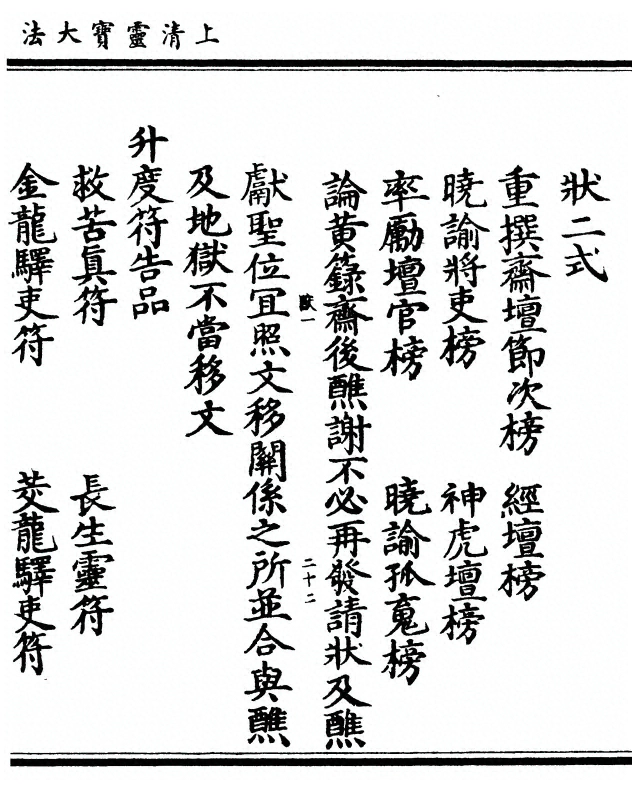 上清靈寶大法
狀二式
重撰齋壇節次榜 經壇榜
曉諭將吏榜 神虎壇榜
率勵壇官榜 曉諭孤䰟榜
論黃籙齋後醮謝不必再發請狀及醮
二十二
獻聖位冝照文移關係之所並合與醮
及地獄不當移文
升度符告品
救苦眞符 長生靈符
金龍驛吏符 茭龍驛吏符